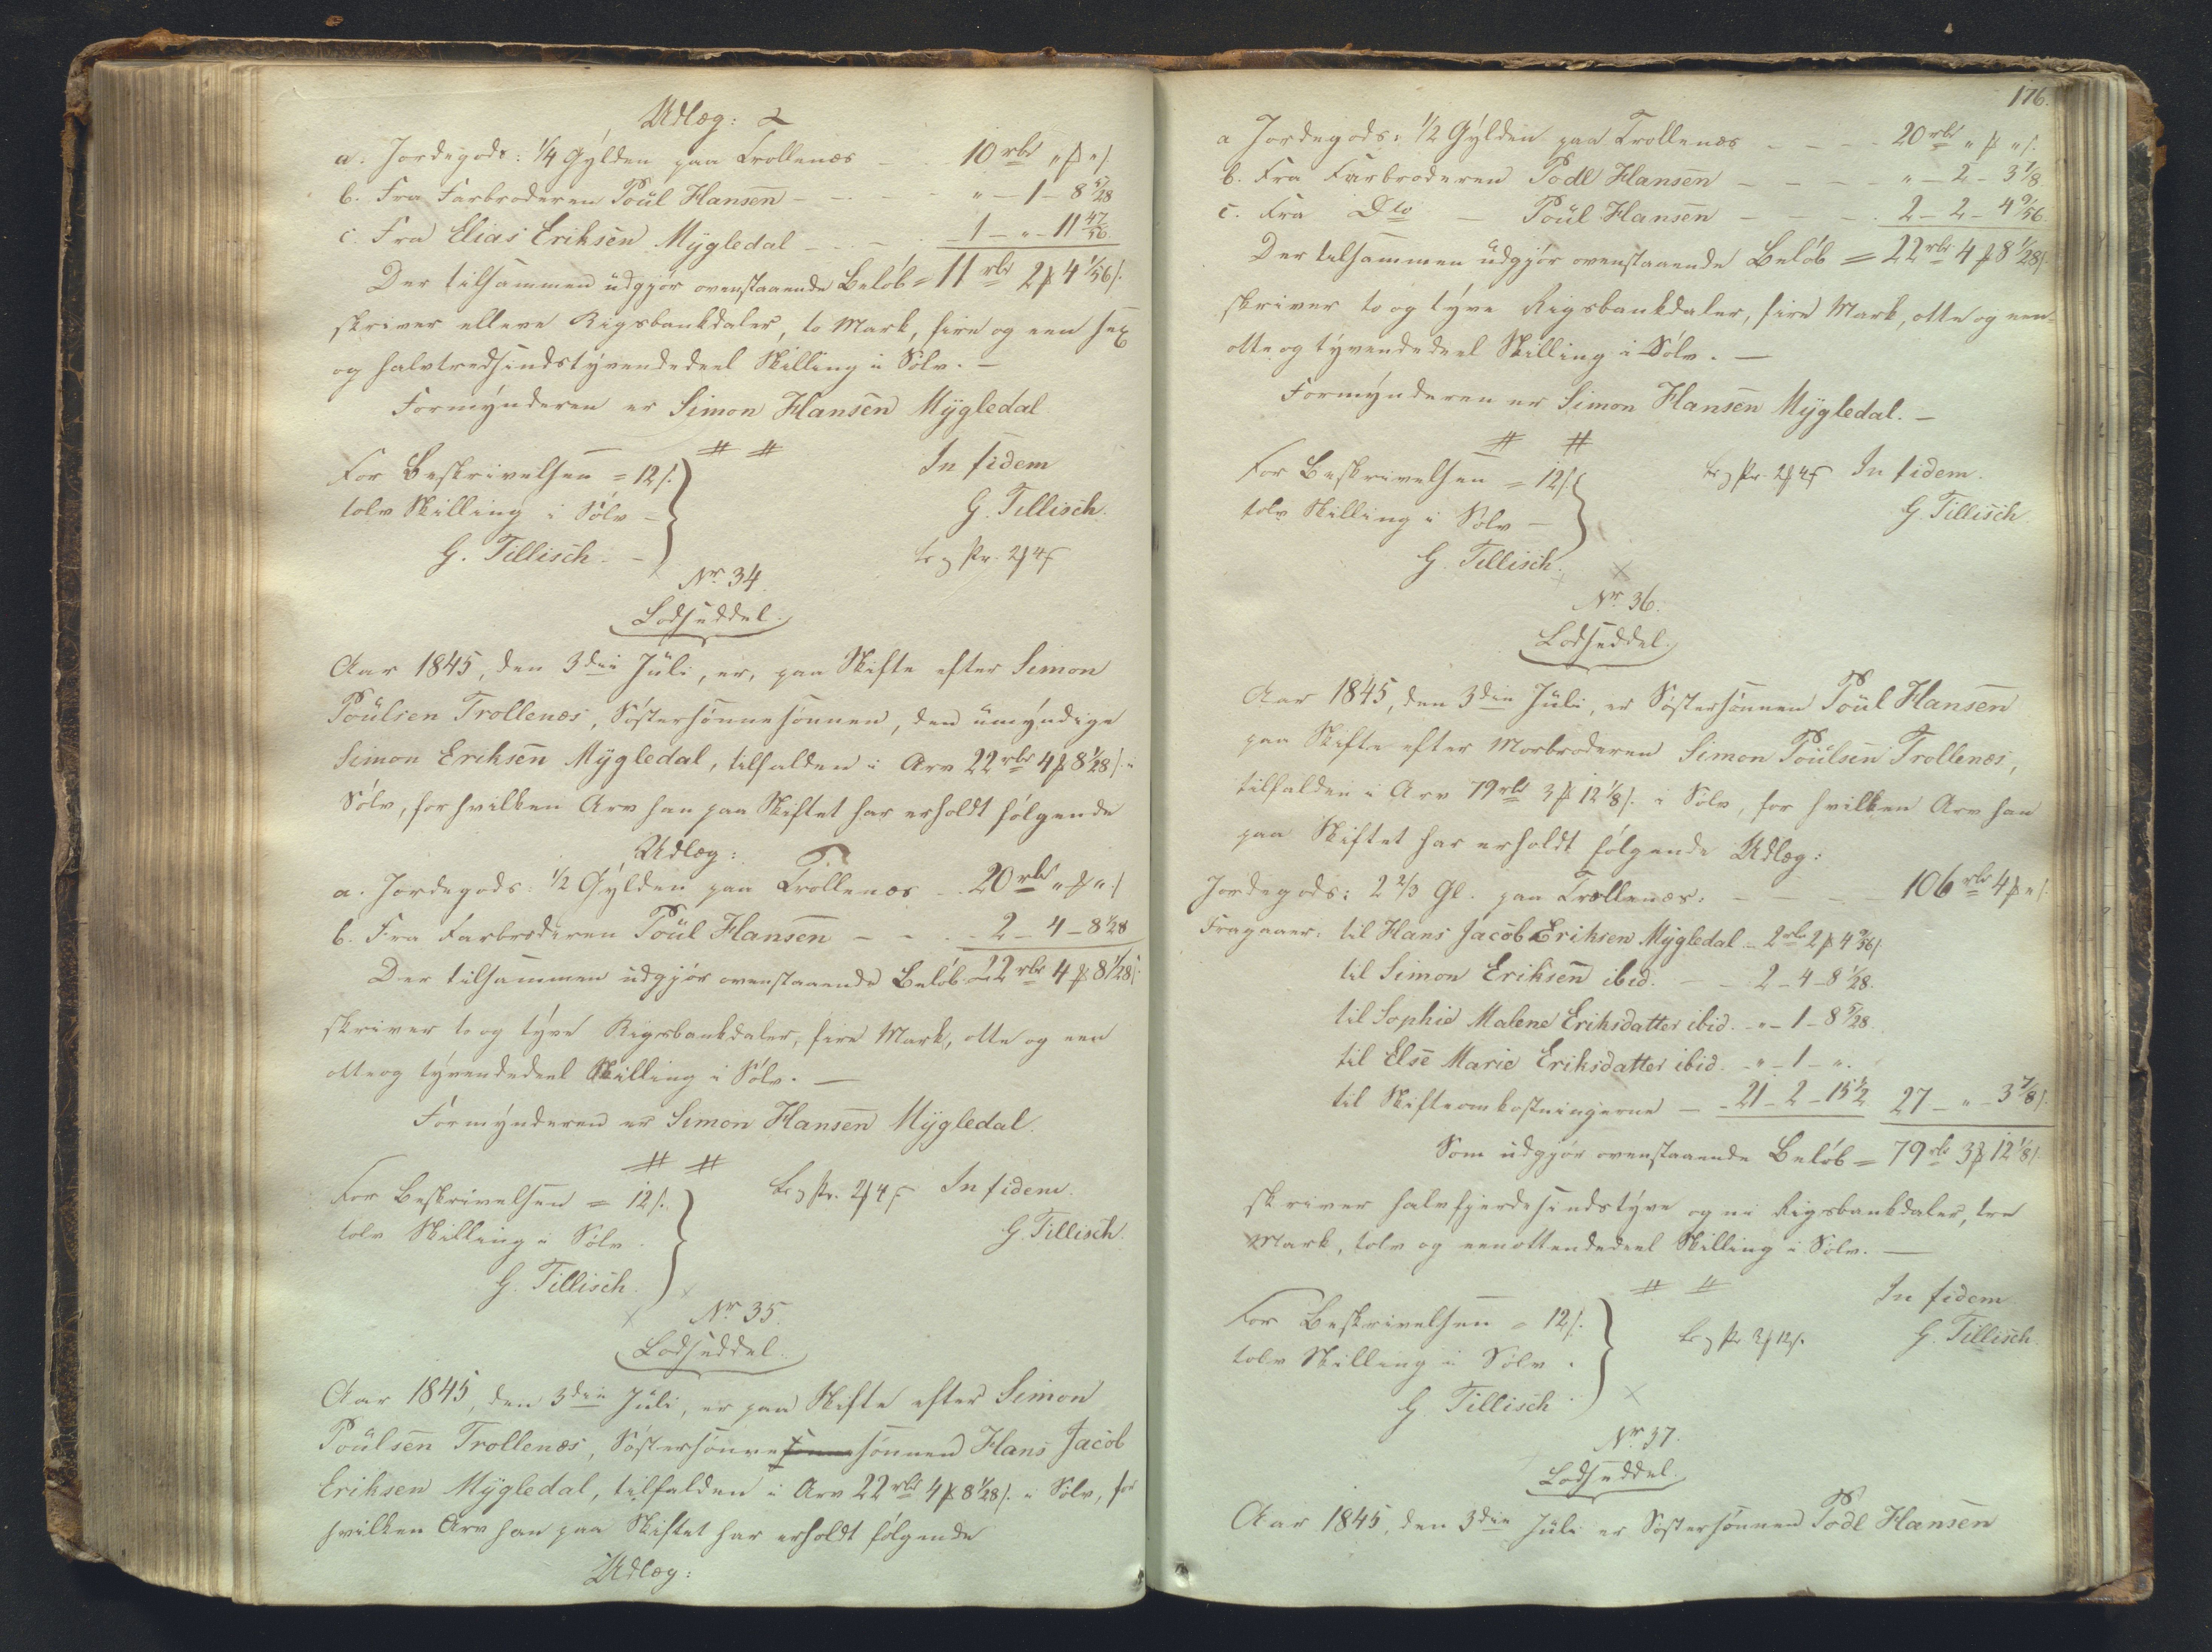 Udlæg:
a. Jordegods: 1/4 Gÿlden paa Trollenæs - - 10 rbd „ ꝑ „ s.
b. Fra Farbroderen Poül Hansen - - - „ - 1 - 8 5/28
c. Fra Elias Eriksen Mÿgledal - - - 1 - „ - 11 47/56
Der tilsammen üdgjør ovenstaaende Beløb = 11 rbd 2 ꝑ 4 1/56 s.
skriver elleve Rigsbankdaler, to Mark, fire og een sex
og halvtredsindstÿvendedeel Skilling i Sølv. -
Formÿnderen er Simon Hansen Mÿgledal
For Beskrivelsen = 12 s.
tolv Skilling i Sølv -
G. Tillisch. -
In fidem
G. Tillisch.
Nr. 34.
Lodseddel.
Aar 1845, den 3die Jüli, er, paa Skifte efter Simon
Poülsen Trollenæs, Søstersønnesønnen, den ümÿndige
Simon Eriksen Mÿgledal, tilfalden i Arv 22 rbd 4 ꝑ 8 1/28 s. i
Sølv, for hvilken Arv han paa Skiftet har erholdt følgende
Udlæg:
a. Jordegods: 1/2 Gÿlden paa Trollenæs - - 20 rbd „ ꝑ „ s.
b. Fra Farbroderen Poül Hansen - - - 2 - 4 - 8 1/28
Der tilsammen üdgjør ovenstaaende Beløb 22 rbd 4 ꝑ 8 1/28 s.
skriver to og tÿve Rigsbankdaler, fire Mark, otte og een
otteog tÿvendedeel Skilling i Sølv. -
Formÿnderen er Simon Hansen Mÿgledal.
For Beskrivelsen = 12 s.
tolv Skilling i Sølv.
G. Tillisch.
In fidem.
G. Tillisch.
Nr. 35.
Lodseddel.
Aar 1845, den 3die Jüli, er paa Skifte efter Simon
Poülsen Trollenæs, Søstersønnesønnen Hans Jacob
Eriksen Mÿgledal, tilfalden i Arv 22 rbd 4 ꝑ 8 1/28 s. i Sølv, for
hvilken Arv han paa Skiftet har erholdt følgende
Udlæg:
176.
a Jordegods: 1/2 Gÿlden paa Trollenæs - - - 20 rbd „ ꝑ „ s.
b. Fra Farbroderen Podl Hansen - - - - „ - 2 - 3 7/8
c. Fra Dto - Poül Hansen - - - 2 - 2 - 4 9/56.
Der tilsammen üdgjør ovenstaaende Beløb = 22 rbd 4 ꝑ 8 1/28 s.
skriver to og tÿve Rigsbankdaler, fire Mark, otte og een
otte og tÿvendedeel Skilling i Sølv. -
Formÿnderen er Simon Hansen Mÿgledal. -
For Beskrivelsen = 12 s.
tolv Skilling i Sølv -
G. Tillisch.
In fidem.
G. Tillisch
Nr. 36.
Lodseddel.
Aar 1845, den 3die Jüli, er Søstersønnen Poül Hansen
paa Skifte efter Morbroderen Simon Poülsen Trollenæs,
tilfalden i Arv 79 rbd 3 ꝑ 12 1/8 s. i Sølv, for hvilken Arv han
paa Skiftet har erholdt følgende Udlæg:
Jordegods: 2 2/3 Gl. paa Trollenæs. - - - - 106 rbd 4 ꝑ „ s.
Fragaaer: til Hans Jacob Eriksen Mÿgledal - 2 rbd 2 ꝑ 4 9/56 s.
til Simon Eriksen ibid. - - 2 - 4 - 8 1/28.
til Sophie Malene Eriksdatter ibid. - „ - 1 - 8 5/28.
til Else Marie Eriksdatter ibid. - „ - 1 - „.
til Skifteomkostningerne - - 21 - 2 - 15 1/2 27 - „ - 3 7/8 s.
Som üdgjør ovenstaaende Beløb = 79 rbd 3 ꝑ 12 1/8 s.
skriver halvfjerdesindstÿve og ni Rigsbankdaler, tre
Mark, tolv og eenottendedeel Skilling i Sølv. -
For Beskrivelsen = 12 s.
tolv Skilling i Sølv.
G. Tillisch
In fidem
G. Tillisch.
Nr. 37.
Lodseddel.
Aar 1845, den 3die Jüli er Søstersønnen Podl Hansen